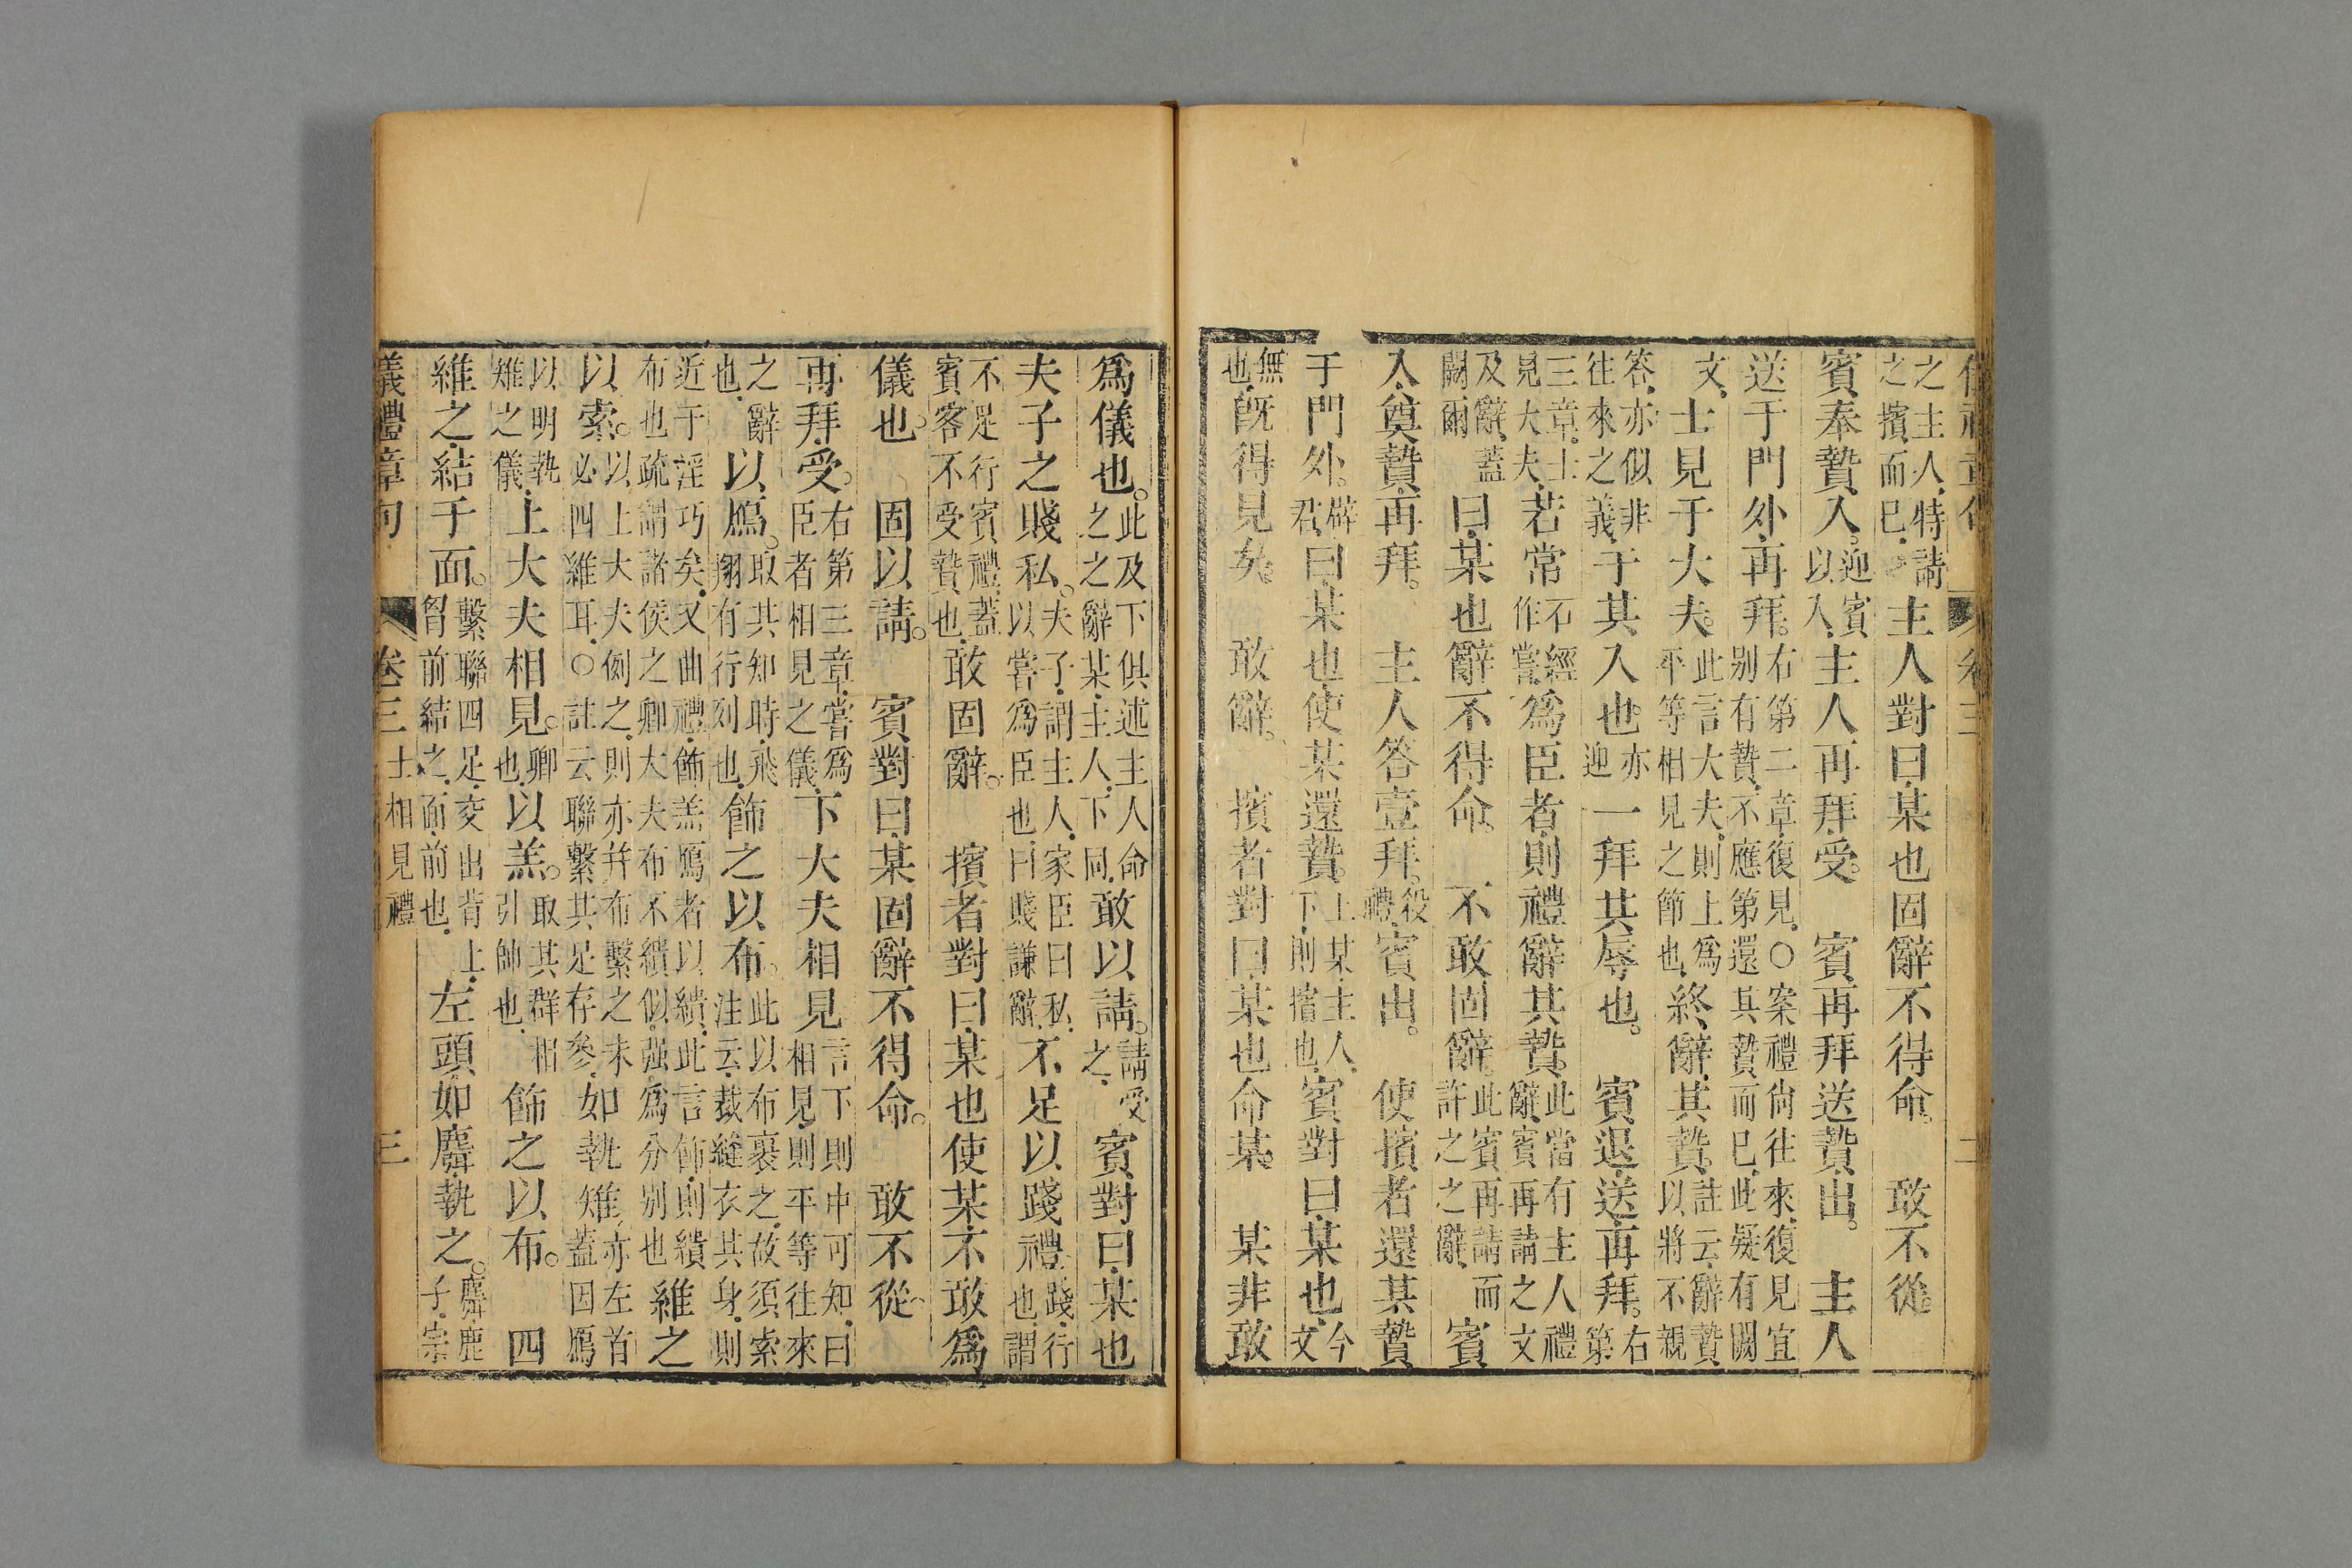 儀禮章句 卷三 二
之主人特請之擯而已主人對曰某也固辭不得命。 敢不從。
賓奉贄入。迎賓以入主人再拜受。 賓再拜送贄出。 主人
送于門外再拜。右第二章復見〇案禮尚往來復見宜别有贄不應第還其贄而已此疑有闕
文 士見于大夫。此言大夫則上爲平等相見之節也終辭其贄註云辭贄以將不親
答亦似非往來之義于其入也亦迎一拜其辱也。 賓退送再拜。右第
三章士見大夫若常石經作嘗爲臣者則禮辭其贄此當有主人禮辭賓再請之文
及辭蓋闕爾 曰某也辭不得命。 不敢固辭。此賓再請而許之之辭 賓
入奠贄再拜。 主人答壹拜。殺禮賓出。 使擯者還其贄
于門外。辟君曰某也使某還贄。上某主人下則擯也賓對曰某也今文
無也既得見矣。 敢辭。 擯者對曰某也命某 某非敢
爲儀也。此及下俱述主人命之之辭某主人下同敢以請。請受之 賓對曰某也
夫子之賤私。夫子謂主人家臣曰私以嘗爲臣也曰賤謙辭不足以踐禮踐行也謂
不足行賓禮蓋賓客不受贄也敢固辭。 擯者對曰某也使某不敢爲
儀也。 固以請。 賓對曰某固辭不得命。 敢不從
再拜受。右第三章嘗爲臣者相見之儀下大夫相見言下則中可知曰相見則平等往來
之辭也 以鴈。取其知時飛翔有行列也飾之以布。此以布裹之故須索注云裁縫衣其身則
近于淫巧矣又曲禮飾羔鴈者以繢此言飾則繢布也疏謂諸侯之卿大夫布不繢似强爲分别也 維之
以索。以上大夫例之則亦并布繫之未必四維耳〇註云聯繫其足存參如執雉亦左首蓋因鴈
以明執雉之儀上大夫相見。卿也以羔。取其群引帥也 飾之以布。 四
維之結于面。繫聯四足交出背上胷前結之面前也左頭如麛執之。麛鹿子宗
儀禮章句 卷三 士相見禮 三